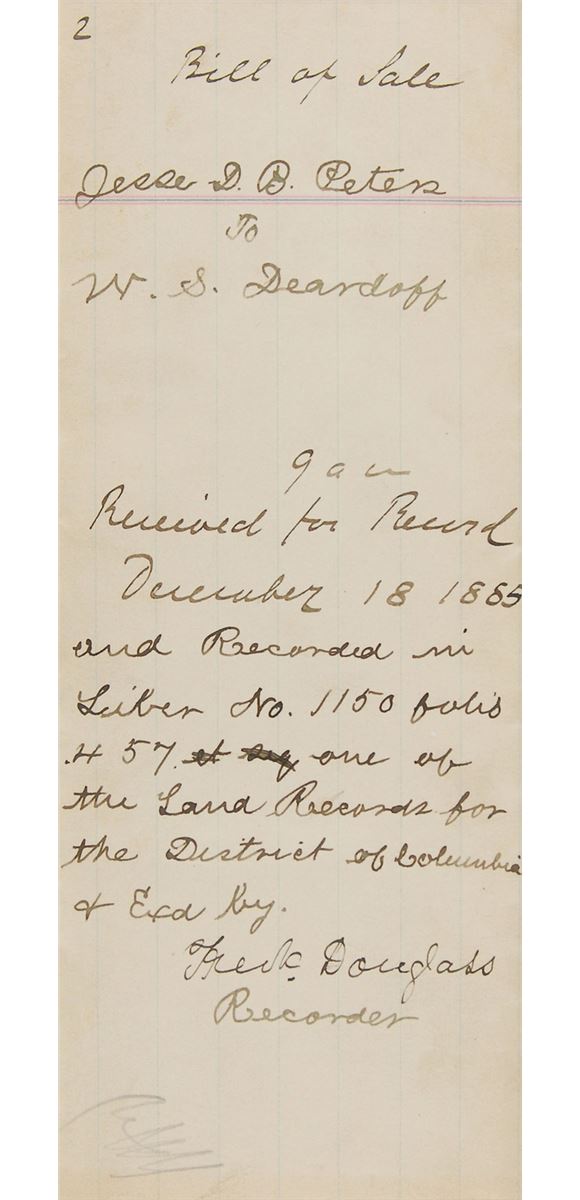 2
Bill of Sale
Jesse D. B. Peters
To
W. S. Deardoff
9 a m
Received for Record
December 18 1885
and Recorded in
Liber No. 1150 folio
457 et seq one of
the Land Records for
the District of Columbia
& Exd by.
Fredk. Douglass
Recorder